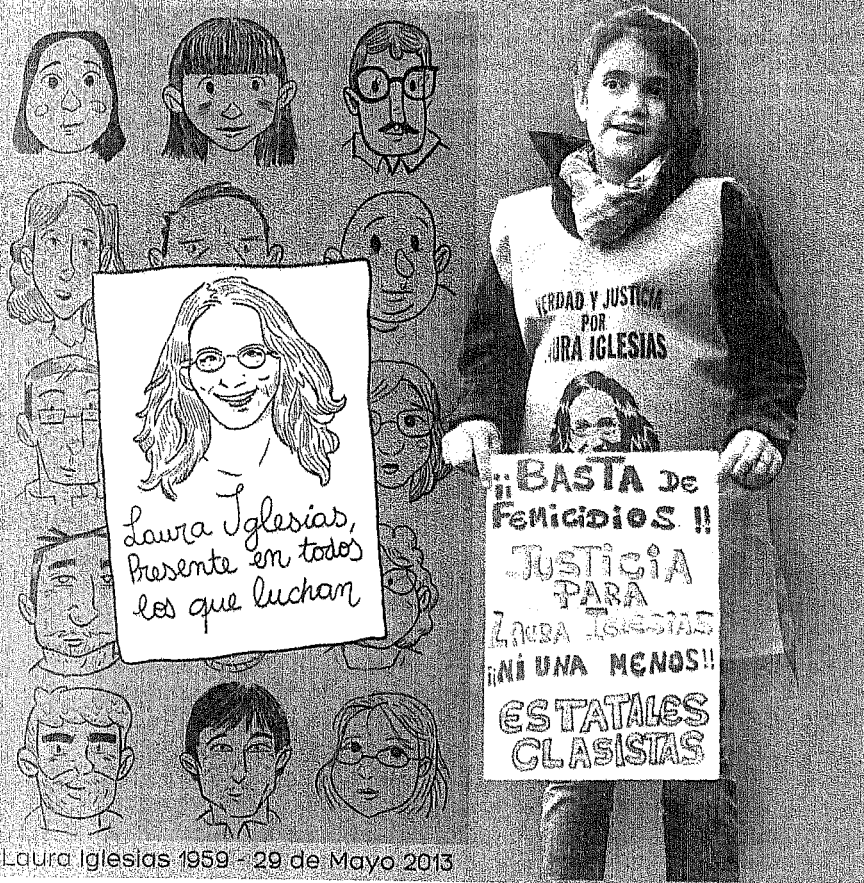 Laura Iglesias,
Presente en todos
los que luchan
VERDAD Y JUSTICIA
POR
LAURA IGLESIAS
¡¡BASTA DE
FEMICIDIOS !!
JUSTICIA
PARA
LAURA IGLESIAS
¡¡NI UNA MENOS!!
ESTATALES
CLASISTAS
Laura Iglesias 1959 - 29 de Mayo 2013